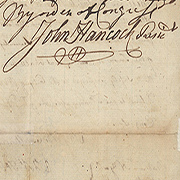 By order of Congress
John Hancock Presid